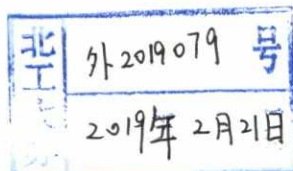 北工
外2019079 号
2019年 2月21日